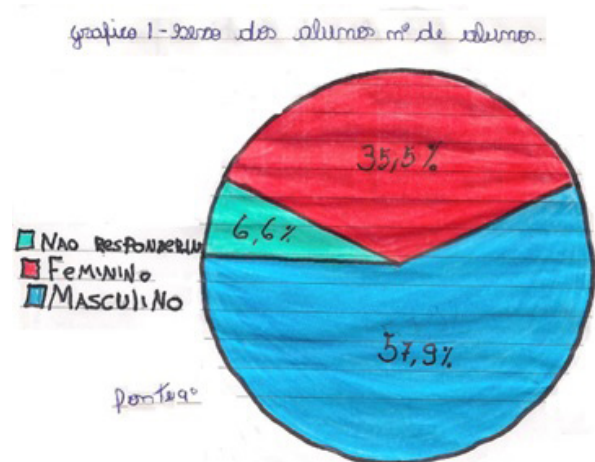 grafico 1 - sexo dos alunos nº de alunos.
35,5%
6,6%
NAO RESPONDERIN
FEMININO
MASCULINO
57,9%